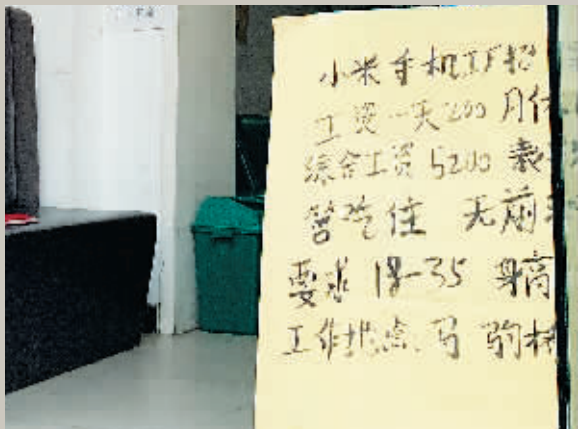 小米手机工厂招
工资一天200 月休
综合工资5200
管吃住 无
要求 18-35 身高
工作地点.马驹桥